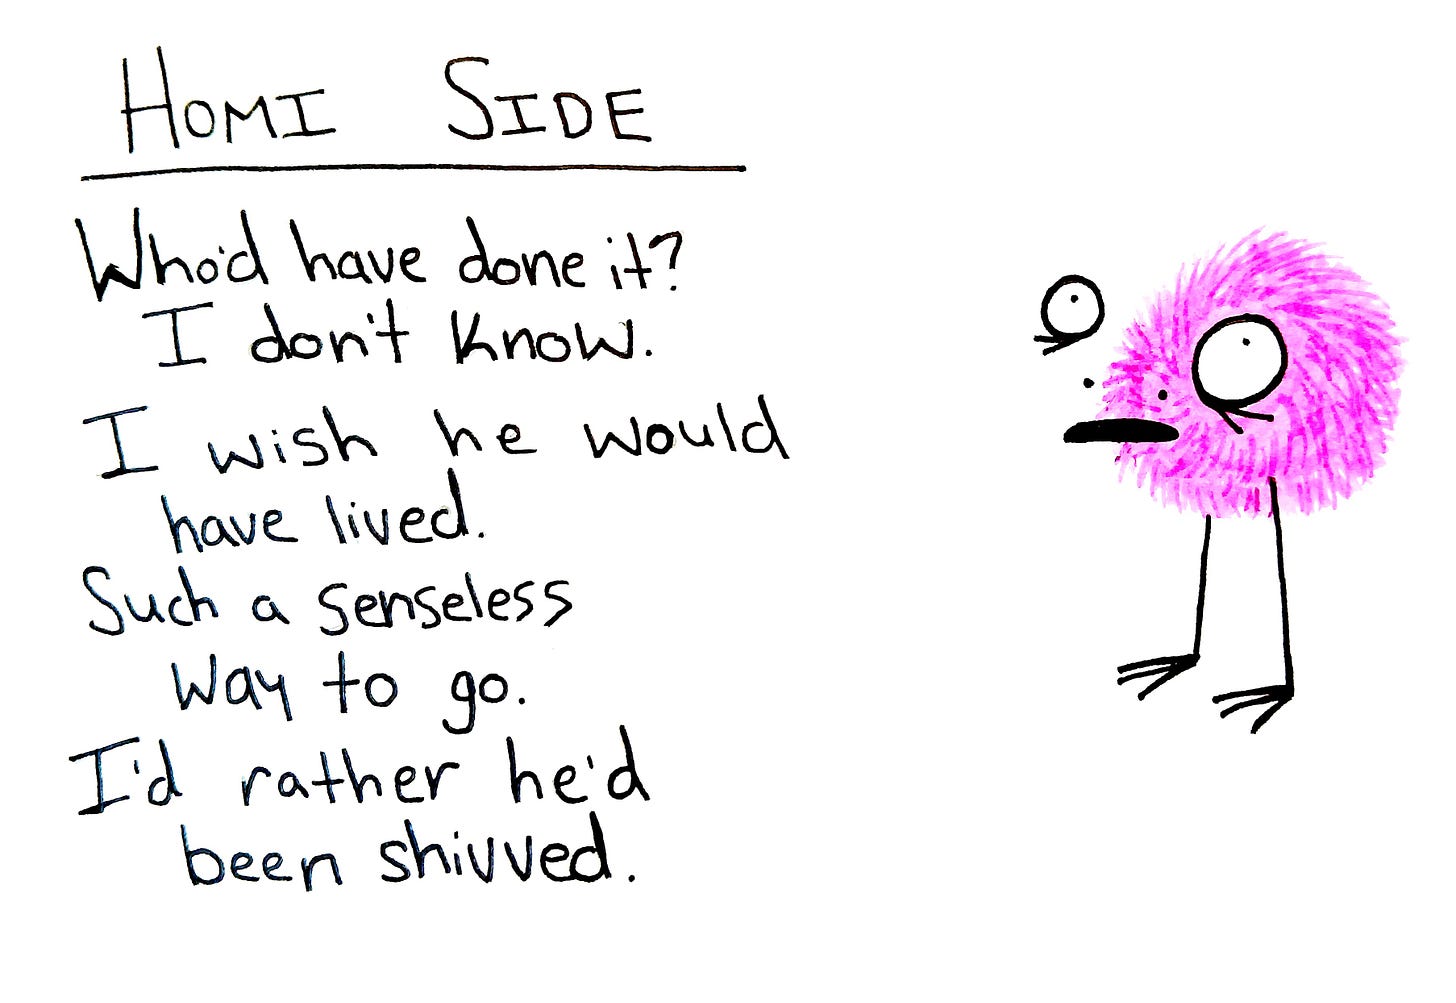 HOMI SIDE
Who'd have done it?
I don't know.
I wish he would
have lived.
Such a senseless
way to go.
I'd rather he'd
been shivved.